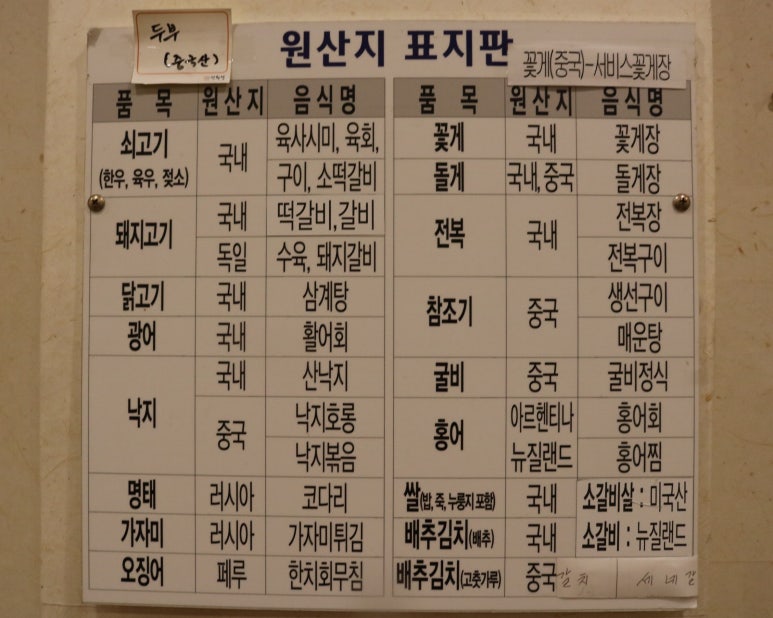 두부
(중국산)
원산지 표지판
꽃게(중국)-서비스꽃게장
품 목 원산지 음식명
쇠고기
(한우, 육우, 젖소)
국내
육사시미, 육회,
구이, 소떡갈비
돼지고기
국내 떡갈비,갈비
독일 수육, 돼지갈비
닭고기 국내 삼계탕
광어 국내 활어회
낙지
국내 산낙지
중국
낙지호롱
낙지볶음
명태 러시아 코다리
가자미 러시아 가자미튀김
오징어 페루 한치회무침
품 목 원산지 음식명
꽃게 국내 꽃게장
돌게 국내, 중국 돌게장
전복 국내
전복장
전복구이
참조기 중국
생선구이
매운탕
굴비 중국 굴비정식
홍어
아르헨티나 홍어회
뉴질랜드 홍어찜
쌀(밥, 죽, 누룽지 포함) 국내 소갈비살 : 미국산
배추김치(배추) 국내 소갈비 : 뉴질랜드
배추김치(고춧가루) 중국 갈치 세네갈